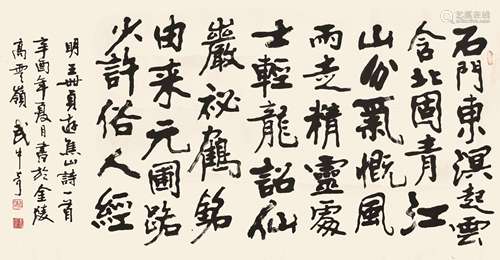 石門東溟起雲
含北固青江
山分氣概風
雨走精靈處
士輕龍詔仙
巖祕鶴銘
由来元圃路
少許俗人經
明王世貞遊焦山詩一首
辛酉年夏月書於金陵
高雲嶺 武中奇